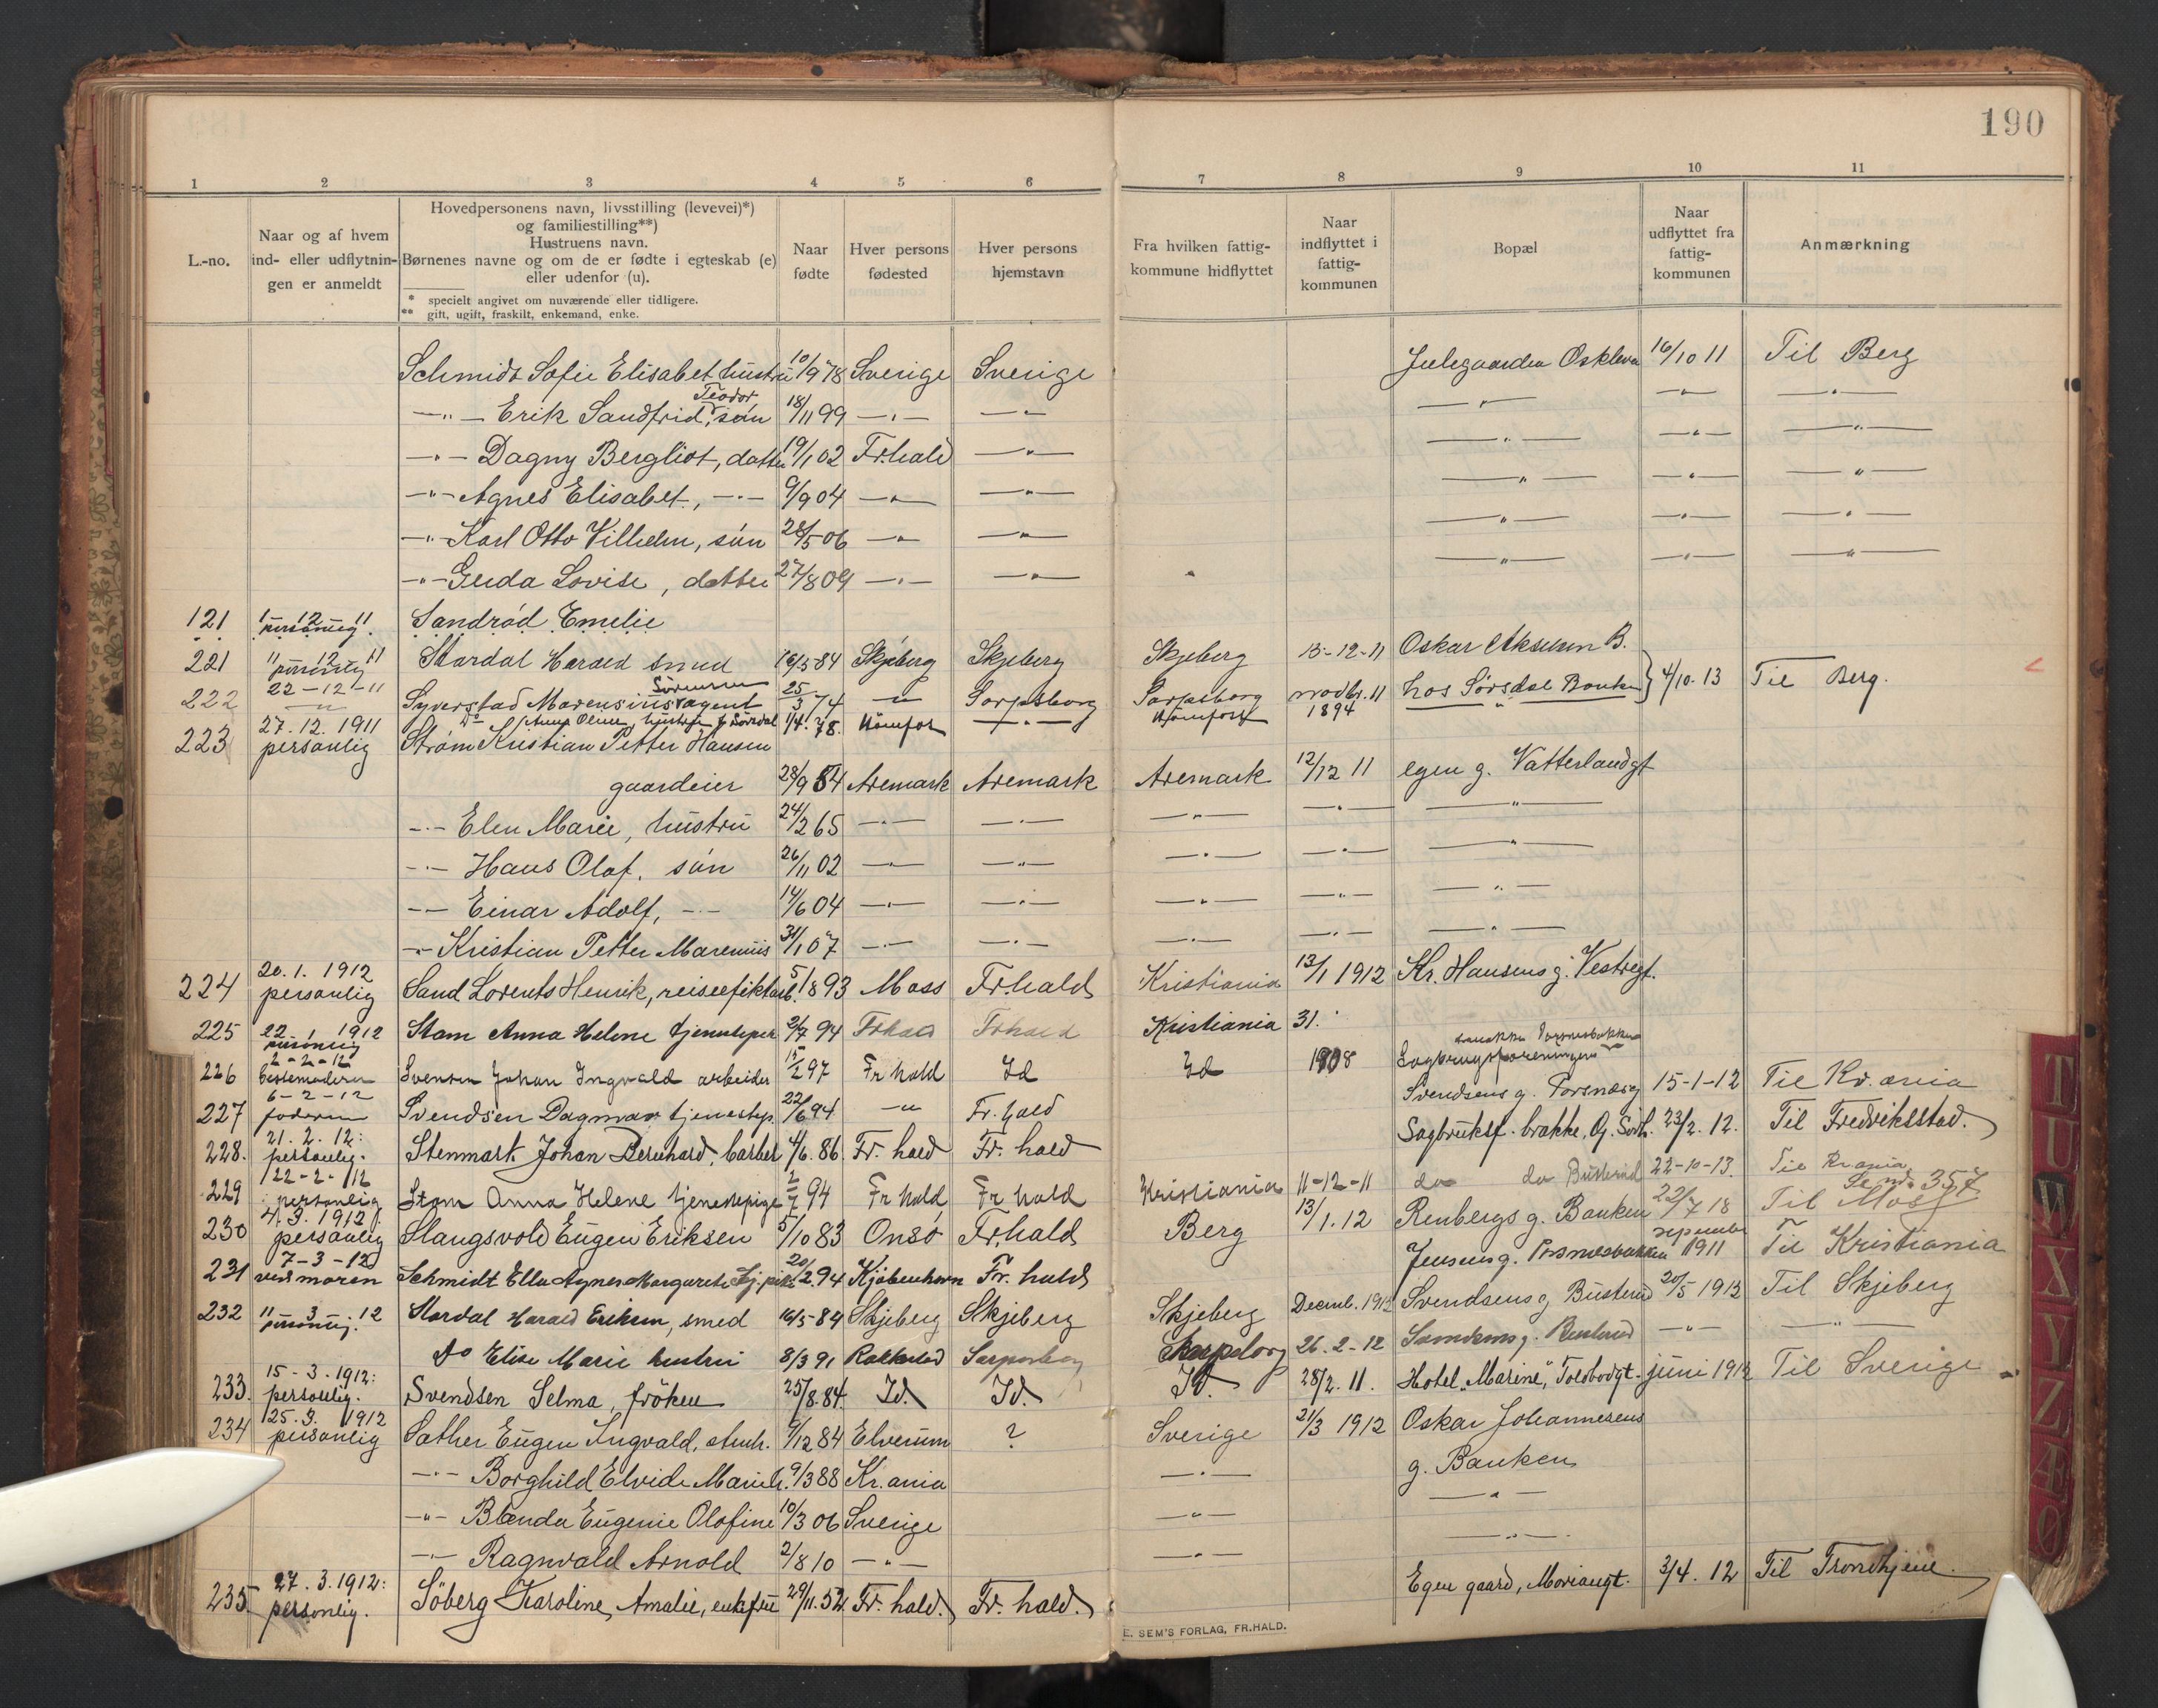 190
1 2 3 4 5 6 7 8 9 10 11
L.-no.
Naar og af hvem ind- eller udflytningen er anmeldt
Hovedpersonens navn, livsstilling (levevei)*)
og familiestilling**)
Hustruens navn.
Børnenes navne og om de er fødte i egteskab (e)
eller udenfor (u).
* specielt angivet om nuværende eller tidligere.
** gift, ugift, fraskilt, enkemand, enke.
Naar fødte
Hver persons fødested
Hver persons hjemstavn
Fra hvilken fattig-kommune hidflyttet
Naar indflyttet i fattig-kommunen
Bopæl
Naar udflyttet fra fattig-kommunen
Anmærkning
Schmidt Sofie Elisabet hustru 10/9 78 Sverige Sverige 16/10 11 Til Berg
—"— Erik Sandfrid Teodor, søn 18/11 99 —"— —"— —"— —"— —"—
—"— Dagny Bergliot, datter 19/1 02 Fr.hald —"— —"— —"— —"—
—"— Agnes Elisabet, —"— 6/9 04 —"— —"— —"— —"— —"—
—"— Karl Otto Vilhelm, søn 28/5 06 —"— —"— —"— —"— —"—
—"— Gerda Lovise, datter 27/8 09 —"— —"— —"— —"— —"—
121 1-12-11 personlig. Sandrød Emelie
221 11-12-11 personlig Stordal Harald smed 16/5 84 Skjeberg Skjeberg Skjeberg 13-12-11 Oskar Akselsen B.
222 22-12-11 —"— Syverstad Marensius Sørensen agent 25/3 74 —"— Sarpsborg Sarpsborg novbr. 11 hos Sørsdal Banken 4/10. 13 Til Berg.
Do Anna Oline, hustru f. Sørsdal 1/4. 78. —"— 1894 "
223 27.12.1911 personlig Strøm Kristian Petter Hansen
gaardeier 28/9 64 Aremark Aremark Aremark 12/12 11 egen g. Vatterlandgt
—"— Elen Marie, hustru 24/2 65 —"— —"— —"— —"— —"—
—"— Hans Olaf, søn 26/11 02 —"— —"— —"— —"— —"—
—"— Einar Adolf, —"— 14/6 04 —"— —"— —"— —"— —"—
—"— Kristian Petter Marenius 31/1 07 —"— —"— —"— —"— —"—
224 20.1.1912 personlig Sand Lorents Henrik, 5/1 893 Moss Fr.hald Kristiania 13/1 1912 Kr. Hansens g. Vestregt.
225 22-1-1912 personlig Stam Anna Helene tjenestepige 2/7 94 Frhald Frhald Kristiania 31.
226 2-2-12 bestemoderen Svensen Johan Ingvald arbeider 15/2 97 Fr hald Id Id 1908 Sagbrugsforeningens
227 6-2-12 faderen Svendsen Dagmar tjenestep. 22/6 94 —"— Fr. hald Svendsens g. Porsnæs 15-1-12 Til Kr.ania
228. 21.2.12: personlig. Stenmark Johan Bernhard, barber 4/6. 86. Fr. hald Fr. hald Sagbruksf. brakke, 23/2. 12. Til Fredriksstad.
229 22-2-12 personlig Stam Anna Helene tjenestepige 2/7 94 Fr hald Fr hald Kristiania 11-12-11 do do Busterud 22-10-13. Til Kr.ania
230 4.3.1912. personlig Slangsvold Eugen Eriksen 5/10 83 Onsø Fr.hald Berg 13/1. 12 Renbergs g. Banken 22/7 18 Til Moss Se no 357
231 7-3-12 ved moren Schmidt Ella Agnes Margarete 20/2. 94 Kjøbenhavn Fr. hald Jensens g. Porsnesbakken september 1911 Til Kristiania
232 11-3-12 personlig. Stordal Harald Eriksen, smed 16/5-84 Skjeberg Skjeberg Skjeberg Decemb. 191 Svendsens g Busterud 20/5 1912 Til Skjeberg
Do Elise Marie hustru 8/3 91 Rakkestad Sarpsborg Sarpsborg 26-2-12 —"— —"—
233. 15-3-1912: personlig. Svendsen Selma, frøken 25/8. 84. Id. Id. Id. 28/2. 11. Hotel "Marine", Toldbodgt. juni 1912 Til Sverige
234 25.3.1912 personlig Sather Eugen Ingvald, 9/12 84 Elverum ? Sverige 21/3 1912 Oskar Johannesens
g. Banken
—"— Borghild Elvide Marie h. 9/3 88 Kr.ania —"— —"—
—"— Blenda Eugenie Olofine 10/3 06 Sverige —"— —"—
—"— Ragnvald Arnold 2/8 10 —"— —"—
235. 27.3.1912: personlig. Søberg Karoline Amalie, enkefru 29/11. 52. Fr. hald. Fr. hald. Egen gaard, Moriangt. 3/4. 12 Til Trondhjem.
E. SEM'S FORLAG, FR.HALD.
T U W X Y Z Æ Ø